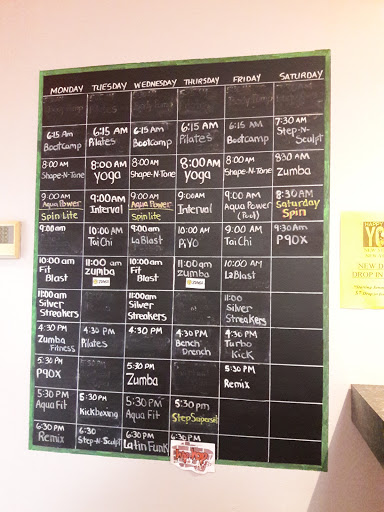 MONDAY TUESDAY WEDNESDAY THURSDAY FRIDAY SATURDAY
6:15 Am 6:15 AM 6:15 Am 6:15 AM 6:15 AM 7:30 AM
Bootcamp Pilates Bootcamp Pilates Bootcamp Step-N-Sculpt
8:00 AM 8:00 AM 8:00 AM 8:00 AM 8:00 AM 8:30 AM
Shape-N-Tone YOGA Shape-N-Tone YOGA Shape-N-Tone Zumba
9:00 AM 9:00 AM 9:00 AM 9:00 AM 9:00 AM 8:30 AM
Aqua Power Interval Aqua Power Interval Aqua Power Saturday
Spin Lite Spin lite (Pool) Spin
9:00am 10:00 AM 9:00 AM 10:00 AM 9:00 AM 9:30 AM
Tai Chi La Blast PiYO Tai Chi P90X
10:00 am 11:00 am 10:00 am 11:00 am 10:00 AM
Fit Zumba Fit Zumba LaBlast
Blast Blast
11:00 am 11:00 am 11:00
Silver Silver Silver
Streakers Streakers Streakers
4:30 PM 4:30 PM 4:30 PM 4:30 PM 4:30 PM
Zumba Pilates Bench Turbo
Fitness Drench Kick
5:30 PM 5:30 PM 5:30 PM
P90X Zumba Remix
5:30 PM 5:30 PM 5:30 PM 5:30 pm
Aqua Fit Kickboxing Aqua Fit Step Superset
6:30 PM 6:30 6:30 PM 6:30 PM
Remix Step-N-Sculpt Latin Funk
NEW D
DROP IN